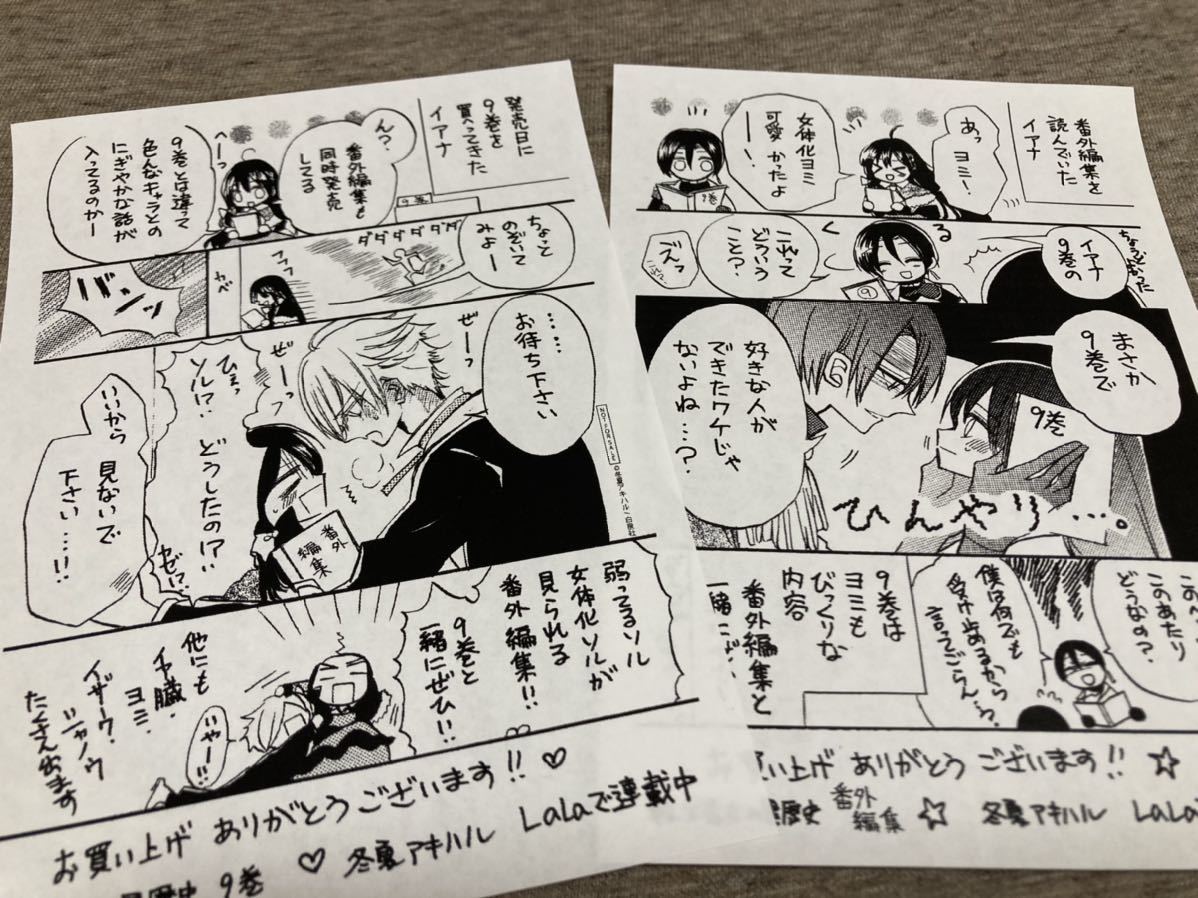 発売日に
9巻を
買ってきた
イアナ
ん?
番外編集も
同時発売
してる
へーっ
9巻とは違って
色んなキャラとの
にぎやかな話が
入ってるのかー
9巻
ちょっと
のぞいて
みよー
ダダダダダダ
カベ
バンッ
……
お待ち下さい
ぜーっ
ぜーっ
ひぇっ
ソル!?
どうしたの!?
番外
編集
いいから
見ないで
下さい…!!
NOT FOR SALE
©冬夏アキハル/白泉社
弱ってるソル
女体化ソルが
見られる
番外編集!!
9巻と
一緒にぜひ!!
いやー!!
他にも
ヨミ・
イザウ・
たくさん出ます
お買い上げ ありがとうございます!! ♡
歴史 9巻 ♡ 冬夏アキハル LaLaで連載中
番外編集を
読んでいた
イアナ
あっ
ヨミ!
女体化ヨミ
可愛かったよ
ー!
9巻
くる
ちょうどよかった
イアナ
9巻の
これって
どういう
こと?
ズっ
⑨
まさか
9巻で
9巻
好きな人が
できたワケじゃ
ないよね…?
ひんやり…。
このあたり
どうなの?
僕は何でも
受け止めるから
言ってごらん
9巻は
ヨミも
びっくりな
内容
番外編集と
い上げ ありがとう ございます!! ☆
歴史 番外編集 ☆ 冬夏アキハル LaLa